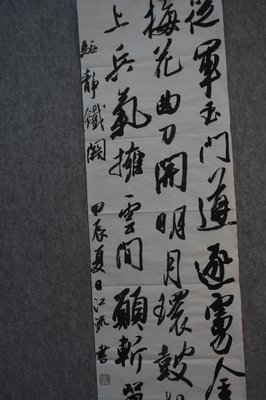 從軍玉門道逐虜金
梅花曲刀開明月環鼓
上兵氣擁雲間願斬單
驅靜鐵關
甲辰夏日江流書